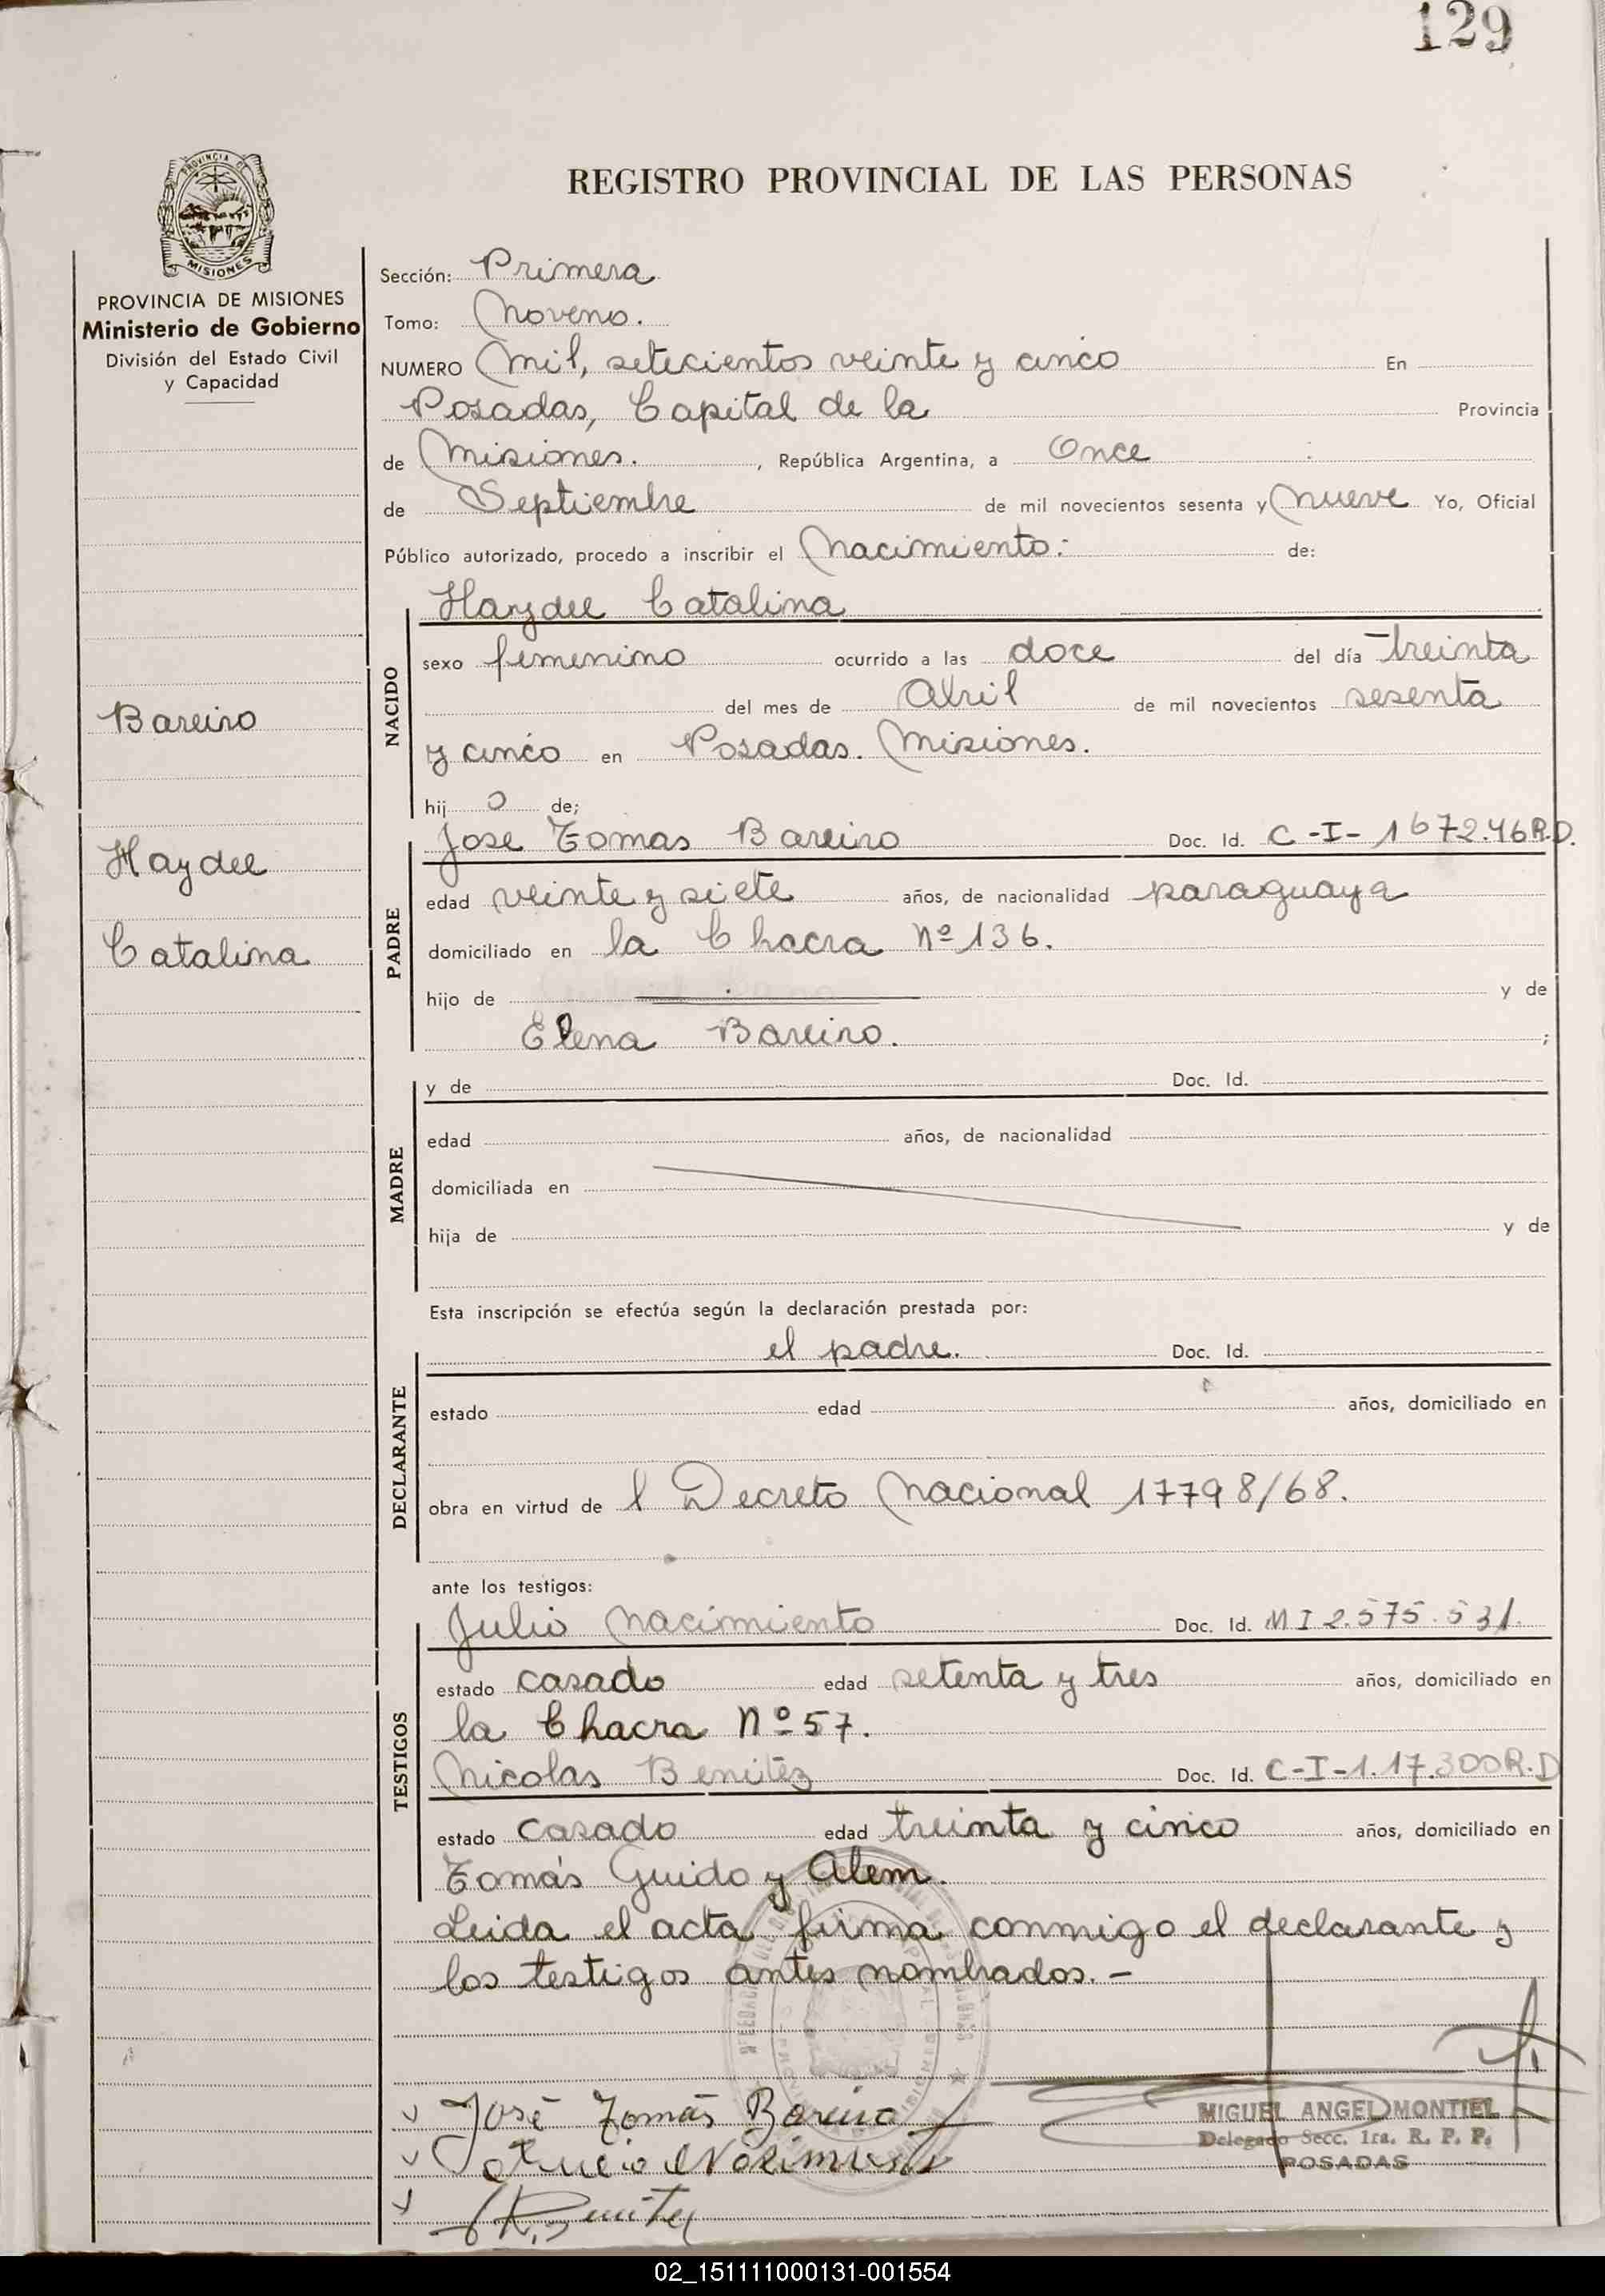 129
PROVINCIA DE
MISIONES
REGISTRO PROVINCIAL DE LAS PERSONAS
PROVINCIA DE MISIONES
Ministerio de Gobierno
División del Estado Civil
y Capacidad
Bareiro
Haydee
Catalina
Sección: Primera
Tomo: Noveno.
NUMERO Mil, setecientos veinte y cinco En
Posadas, Capital de la Provincia
de Misiones. , República Argentina, a Once
de Septiembre de mil novecientos sesenta y nueve Yo, Oficial
Público autorizado, procedo a inscribir el Nacimiento.- de:
NACIDO
Haydee Catalina
sexo femenino ocurrido a las doce del día treinta
del mes de Abril de mil novecientos sesenta
y cinco en Posadas. Misiones.
hij o de;
PADRE
Jose Tomas Bareiro Doc. Id. C-I-1672.46R.D.
edad veinte y siete años, de nacionalidad paraguaya
domiciliado en la Chacra Nº 136.
hijo de y de
Elena Bareiro. ;
MADRE
y de Doc. Id.
edad años, de nacionalidad
domiciliada en
hija de y de
Esta inscripción se efectúa según la declaración prestada por:
DECLARANTE
el padre. Doc. Id.
estado edad años, domiciliado en
obra en virtud de l Decreto Nacional 17798/68.
ante los testigos:
TESTIGOS
Julio Nacimiento Doc. Id. M I 2.575.531.
estado casado edad setenta y tres años, domiciliado en
la Chacra Nº 57.
Nicolas Benitez Doc. Id. C-I-1.17.300R.D
estado casado edad treinta y cinco años, domiciliado en
Tomás Guido y Alem.
Leida el acta firma conmigo el declarante y
los testigos antes nombrados.-
José Tomás Bareiro
MIGUEL ANGEL MONTIEL
Delegado Secc. 1ra. R. P. P.
POSADAS
02_151111000131-001554